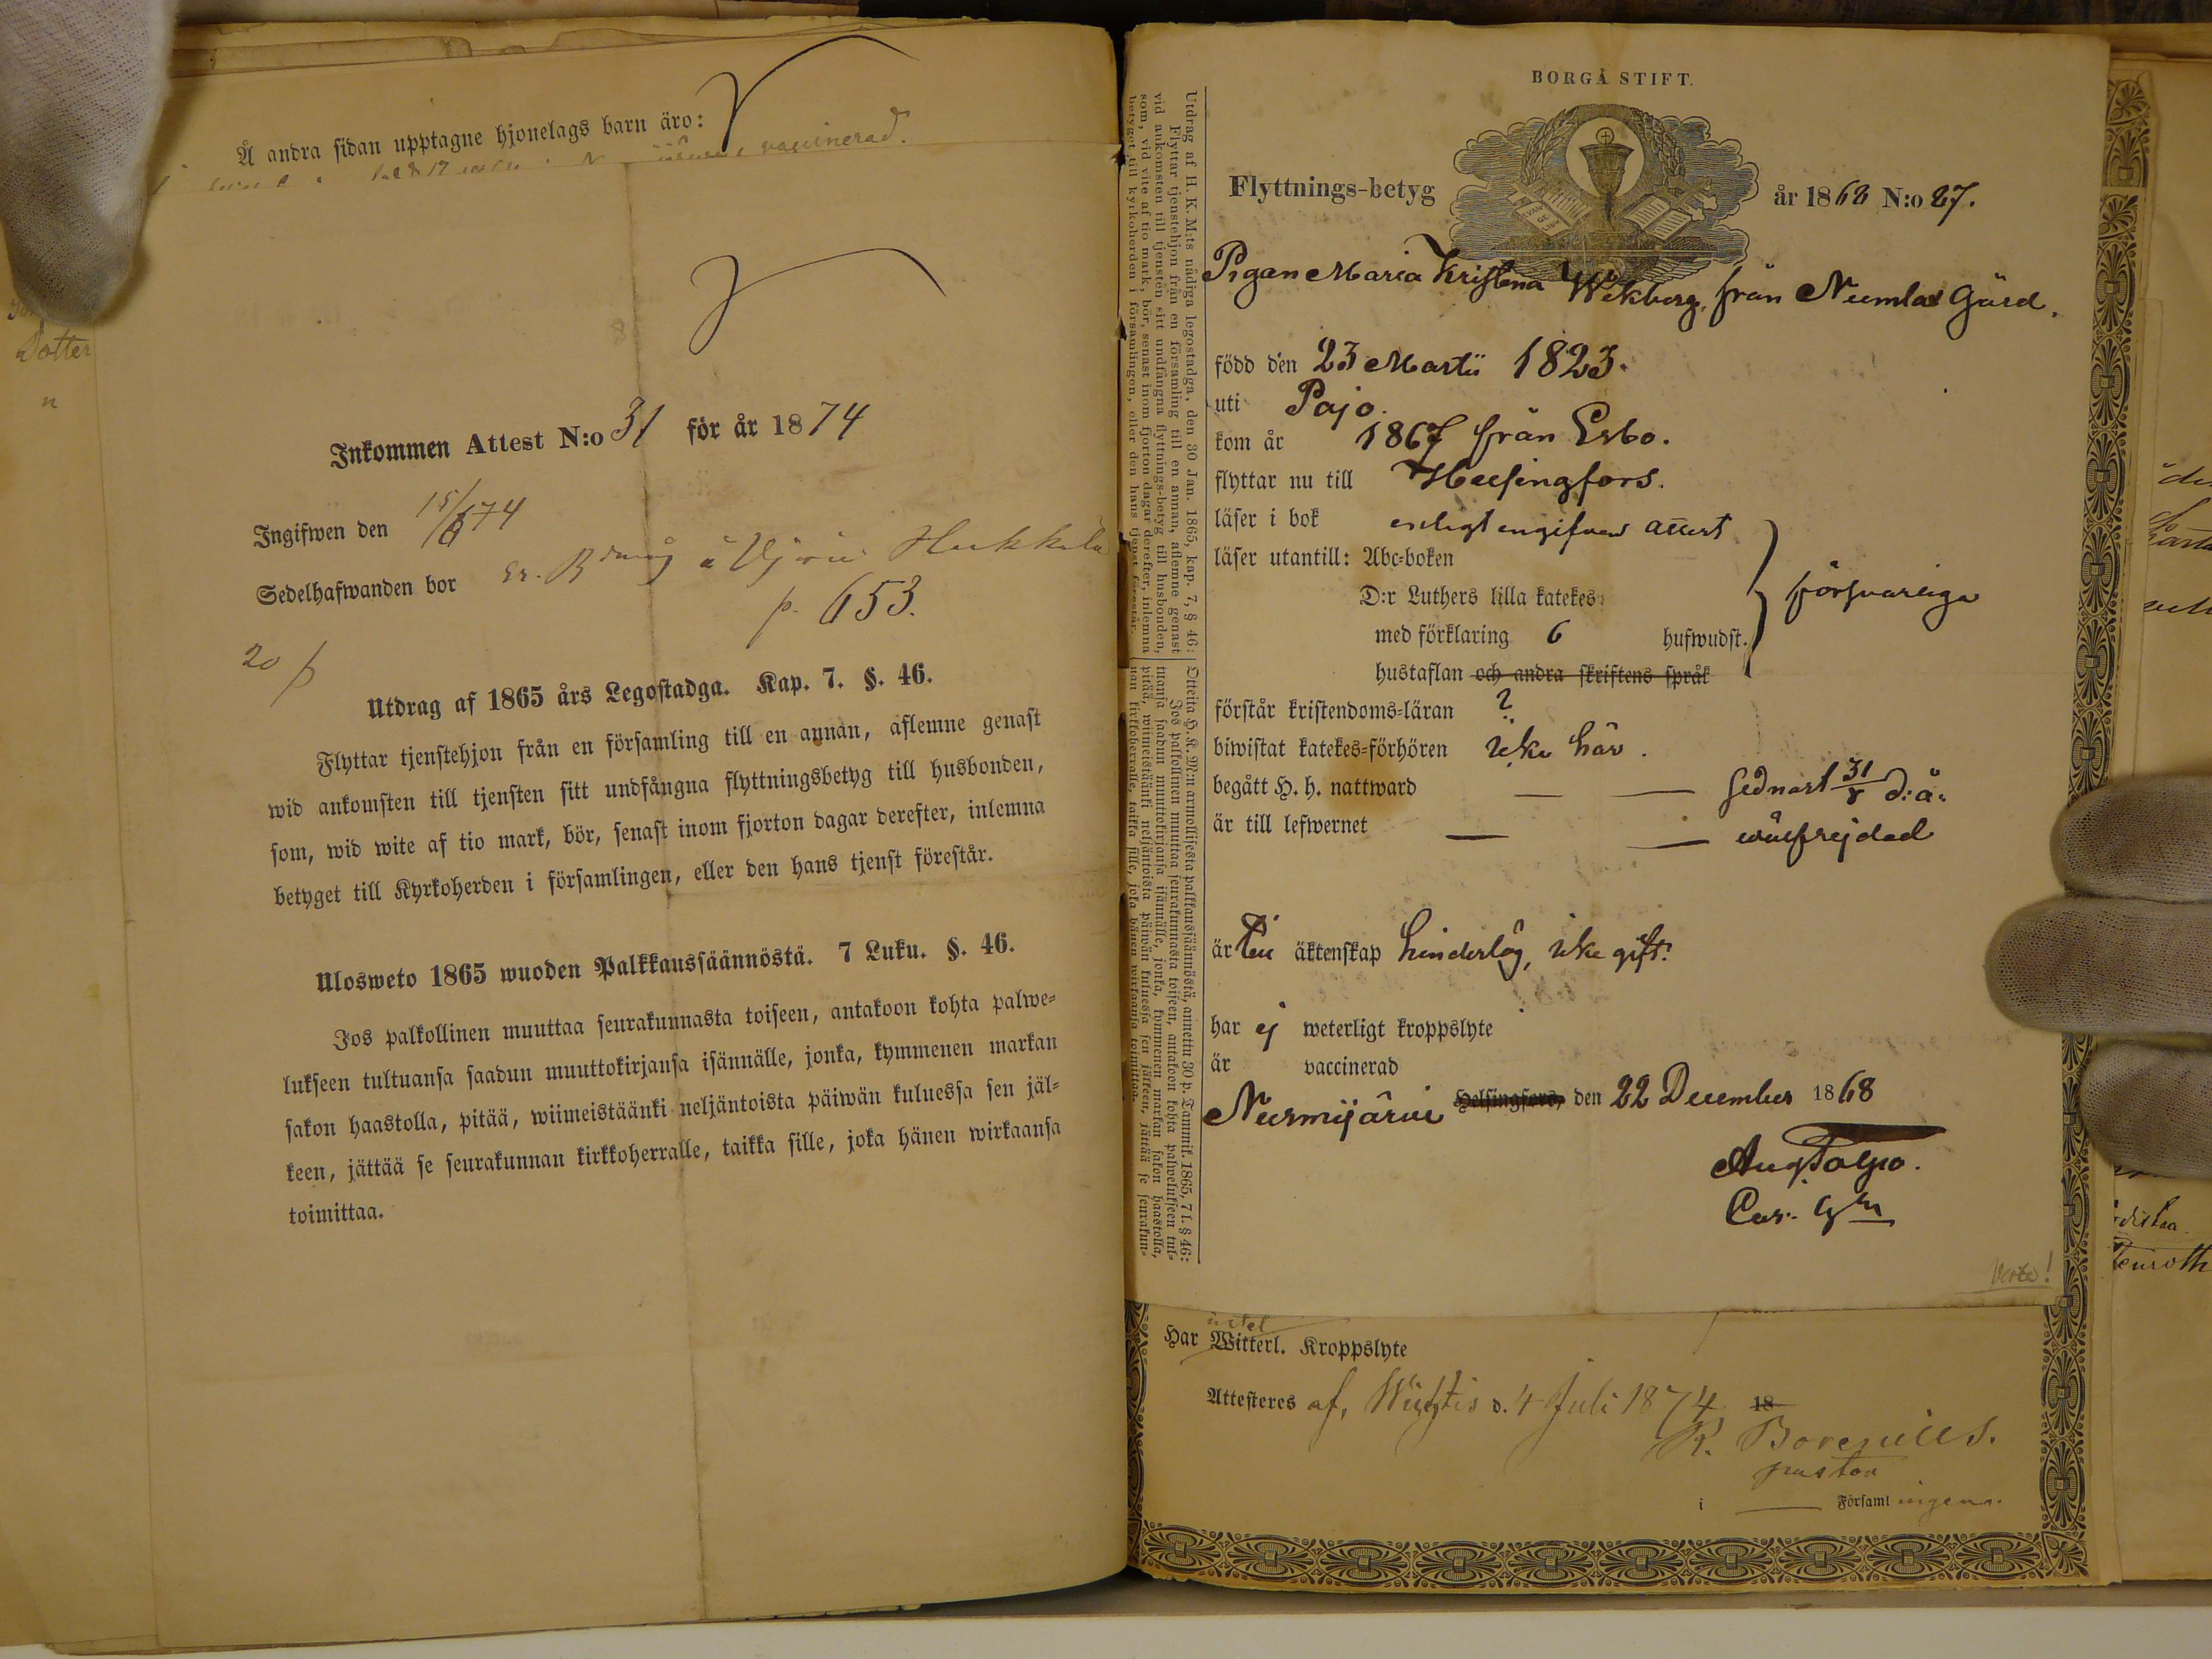 Å andra sidan upptagne hjonelags barn äro:
vaccinerad.
Inkommen Attest N:o 31 för år 1874
Ingifwen den 15/8 74
Sedelhafwanden bor Hukkala
p. 653.
20 p
Utdrag af 1865 års Legostadga. Kap. 7. §. 46.
Flyttar tjenstehjon från en församling till en annan, aflemne genast
wid ankomsten till tjensten sitt undfångna flyttningsbetyg till husbonden,
som, wid wite af tio mark, bör, senast inom fjorton dagar derefter, inlemna
betyget till Kyrkoherden i församlingen, eller den hans tjenst förestår.
Ulosweto 1865 wuoden Palkkaussäännöstä. 7 Luku. §. 46.
Jos palkollinen muuttaa seurakunnasta toiseen, antakoon kohta palwe=
lukseen tultuansa saadun muuttokirjansa isännälle, jonka, kymmenen markan
sakon haastolla, pitää, wiimeistäänki neljäntoista päiwän kuluessa sen jäl=
keen, jättää se seurakunnan kirkkoherralle, taikka sille, joka hänen wirkaansa
toimittaa.
Dotter
n
Utdrag af H. K. M:ts nådiga legostadga, den 30 Jan. 1865, kap. 7, § 46:
Flyttar tjenstehjon från en församling till en annan, aflemne genast
vid ankomsten till tjensten sitt undfångna flyttnings-betyg till husbonden,
som, vid vite af tio mark, bör, senast inom fjorton dagar derefter, inlemna
betyget till kyrkoherden i församlingen, eller den hans tjenst förestår.
Otteita H. K. M:n armollisesta palkkaussäännöstä, annettu 30 p. Tammik. 1865, 7 l. § 46:
Jos palkollinen muuttaa seurakunnasta toiseen, antakoon kohta palwelukseen tul=
tuansa saadun muuttokirjansa isännälle, jonka, kymmenen markan sakon haastolla,
pitää, wiimeistäänki neljäntoista päiwän kuluessa sen jälkeen, jättää se seurakun=
nan kirkkoherralle, taikka sille, joka hänen wirkaansa toimittaa.
BORGÅ STIFT.
Flyttnings-betyg år 1868 N:o 27.
Pigan Maria Kristina Wikberg, från Numlas Gård.
född den 23 Martii 1823.
uti Pojo.
kom år 1867 från Esbo.
flyttar nu till Helsingfors.
läser i bok enligt ingifven attest
läser utantill: Abc-boken
D:r Luthers lilla katekes
med förklaring 6 hufwudst. försvarliga
hustaflan och andra skriftens språk
förstår kristendoms-läran ?
biwistat katekes-förhören icke här.
begått H. h. nattward — — sednast 31/8 d: å:
är till lefwernet — — wälfrejdad
är till äktenskap hinderlög, icke gift.
har ej weterligt kroppslyte
är vaccinerad
Nurmijärvi Helsingfors, den 22 December 1868
Aug. Talpo.
Verte!
Har intet Witterl. Kroppslyte
Attesteres af, Wichtis d. 4 Juli 1874 18
R. Borenius.
pastor
i — Församlingen.